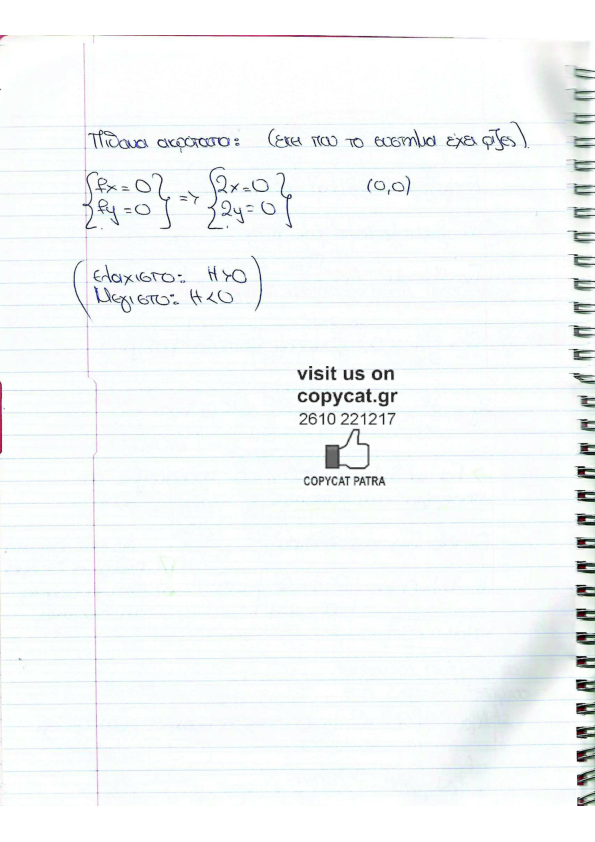 Πιθανα ακροτατα: (εκει που το συστημα έχει ρίζες).
{fx = 0 } => {2x = 0 } (0,0)
{fy = 0 } {2y = 0 }
(ελαχιστο: H > 0)
(Μεγιστο: H < 0)
visit us on
copycat.gr
2610 221217
COPYCAT PATRA